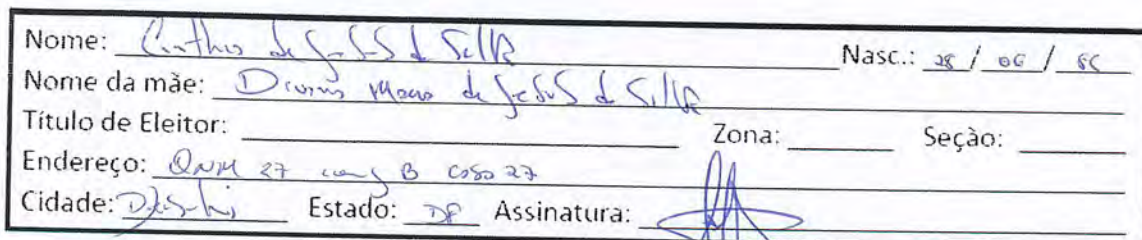 Nome: de Jesus da Silva Nasc.: 28 / 06 / 86
Nome da mãe: Maria de Jesus da Silva
Título de Eleitor: Zona: Seção:
Endereço: QNM 27 conj B casa 27
Cidade: Estado: DF Assinatura: